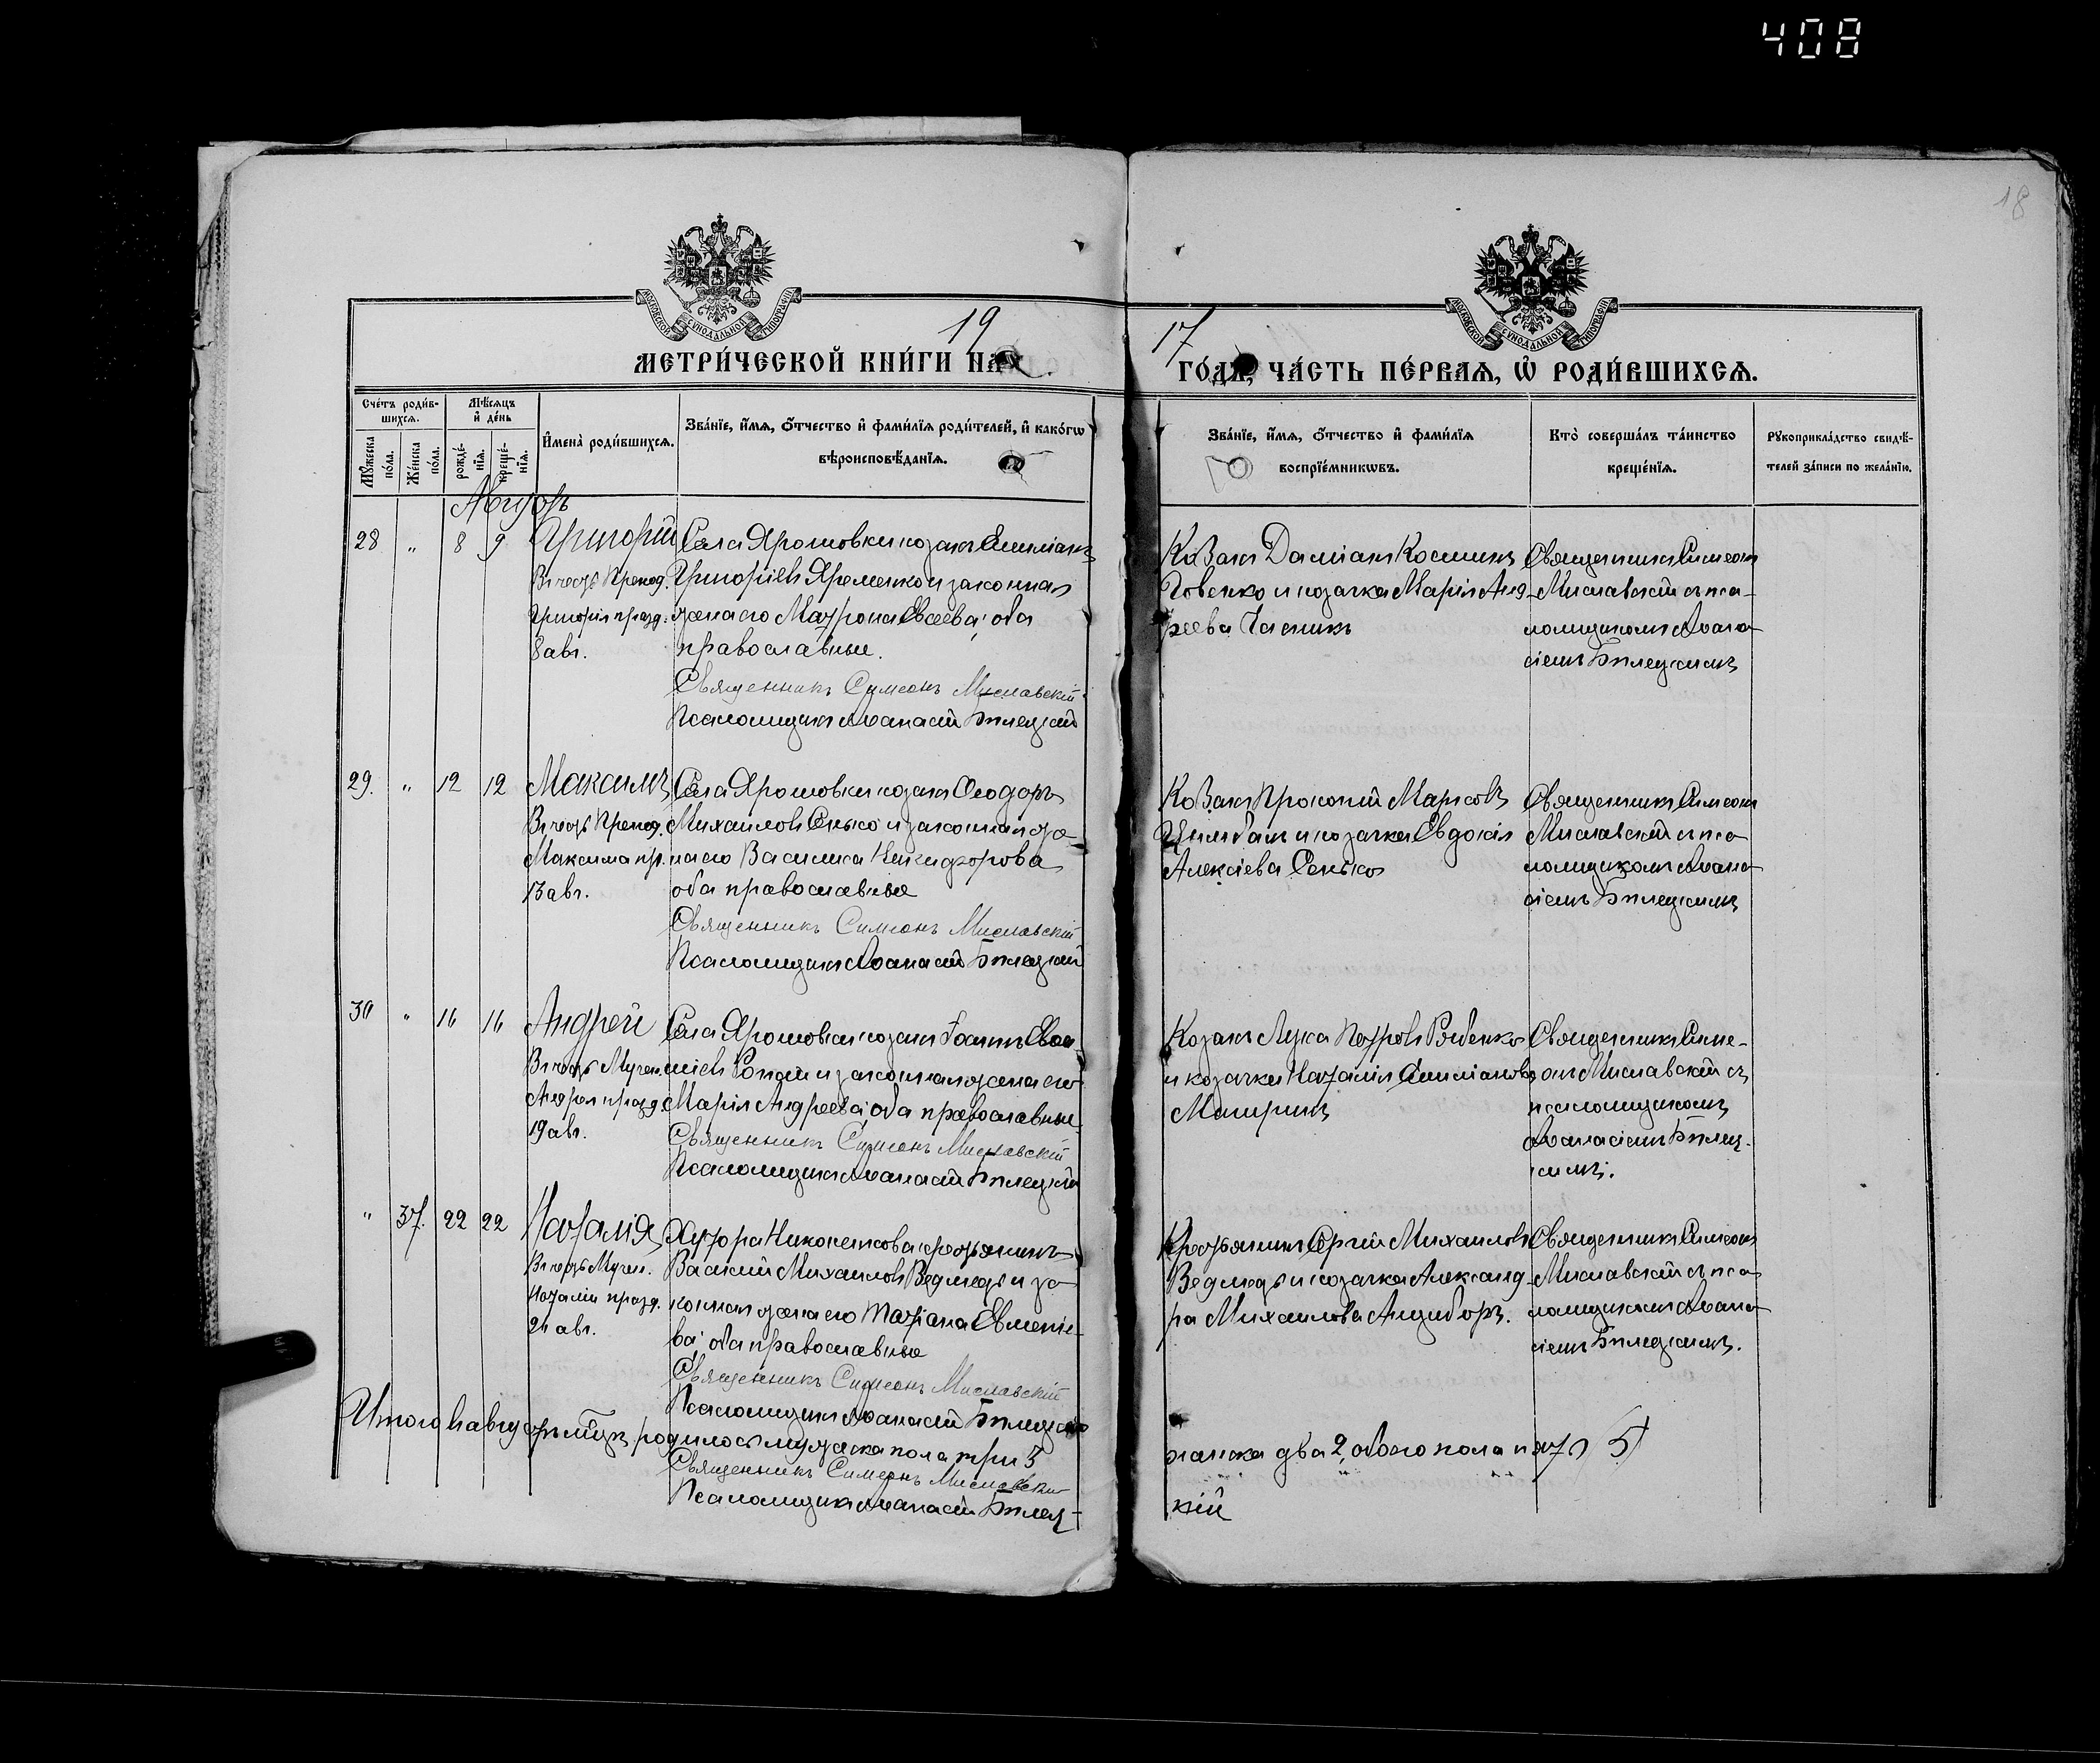 408
18
МОСКОВСКОЙ СѴНОДАЛЬНОЙ ТИПОГРАФІИ
МОСКОВСКОЙ СѴНОДАЛЬНОЙ ТИПОГРАФІИ
МЕТРИ́ЧЕСКОЙ КНИ́ГИ НА 19
17 ГО́ДЪ, ЧА́СТЬ ПЕ́РВАЯ, Ѡ҆ РОДИ́ВШИХСЯ.
Сче́тъ роди́в-
шихся.
Мꙋ́жеска
по́ла.
Же́нска
по́ла.
Мѣ́сяцъ
и҆ де́нь
рожде́-
нїя.
креще́-
нїя.
И҆мена̀ роди́вшихся.
Зва́нїе, и҆́мя, ѻ҆́тчество и҆ фами́лїя роди́телей, и҆ како́гѡ
вѣроисповѣ́данїя.
Зва́нїе, и҆́мя, ѻ҆́тчество и҆ фами́лїя
воспрїе́мникѡвъ.
Кто̀ соверша́лъ та́инство
креще́нїя.
Рꙋкоприкла́дство свидѣ́-
телей за́писи по жела́нїю.
Августъ
28 " 8 9
Григорій
Въ честь Препод.
Григорія празд.
8 авг.
Села Ярошовки козакъ Емиліанъ
Григоріевъ Яременко и законная
жена его Матрона Евсева; оба
православные.
Священникъ Симеонъ Миславскій
Псаломщикъ Аѳанасій Билецкій
Козакъ Даміанъ Косминъ
и козачка Марія Анд-
реева
Священникъ Симеонъ
Миславскій съ пса-
ломщикомъ Аѳана-
сіемъ Билецкимъ
29. " 12 12
Максимъ
Въ честь Препод.
Максима пр.
13 авг.
Села Ярошовки козакъ Ѳеодоръ
Михаиловъ Сенько и законная же-
на его Василиса Никифорова
оба православные
Священникъ Симеонъ Миславскій
Псаломщикъ Аѳанасій Билецкій
Козакъ Прокопій Марковъ
Цимбалъ и козачка Евдокія
Алексіева Сенько
Священникъ Симеонъ
Миславскій съ пса-
ломщикомъ Аѳана-
сіемъ Билецкимъ
30 " 16 16
Андрей
Въ честь Мучен.
Андрея празд.
19 авг.
Села Ярошовки козакъ Іоаннъ Евси-
міевъ Ропай и законная жена его
Марія Андреева; оба православные
Священникъ Симеонъ Миславскій
Псаломщикъ Аѳанасій Билецкій
Козакъ Лука Петровъ Рябенко
и козачка Наталія Емиліанова
Священникъ Симе-
онъ Миславскій съ
псаломщикомъ
Аѳанасіемъ Билец-
кимъ.
" 37. 22 22
Наталія
Въ честь Мучен.
Наталіи празд.
26 авг.
Хутора Николенкова крестьянинъ
Василій Михаиловъ Ведмедь и за-
конная жена его Татіана Евмени-
ва; оба православные
Священникъ Симеонъ Миславскій
Псаломщикъ Аѳанасій Билецкій
Крестьянинъ Сергій Михаиловъ
Ведмедь и козачка Александ-
ра Михаилова Анцыборъ.
Священникъ Симеонъ
Миславскій съ пса-
ломщикомъ Аѳана-
сіемъ Билецкимъ.
Итого въ августѣ мѣсяцѣ родилось мужеска пола три 3
женска два 2, обоего пола пять 5
Священникъ Симеонъ Миславскій
Псаломщикъ Аѳанасій Билец-
кій